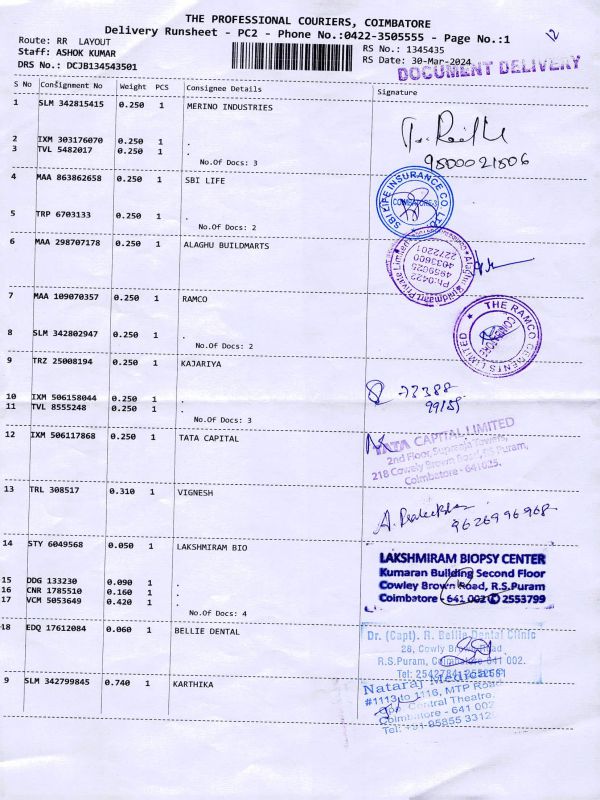 THE PROFESSIONAL COURIERS, COIMBATORE
Delivery Runsheet - PC2 - Phone No.:0422-3505555 - Page No.:1
Route: RR LAYOUT
Staff: ASHOK KUMAR
DRS No.: DCJB134543501
RS No.: 1345435
RS Date: 30-Mar-2024
DOCUMENT DELIVERY
S No Consignment No Weight PCS Consignee Details Signature
1 SLM 342815415 0.250 1 MERINO INDUSTRIES
9800021806
2 IXM 303176070 0.250 1 .
3 TVL 5482017 0.250 1 .
No.Of Docs: 3
4 MAA 863862658 0.250 1 SBI LIFE
SBI LIFE INSURANCE CO. LTD.
COIMBATORE-2
5 TRP 6703133 0.250 1 .
No.Of Docs: 2
6 MAA 298707178 0.250 1 ALAGHU BUILDMARTS
Private Limited
Ph:0422
4959025
4033600
2272201
7 MAA 109070357 0.250 1 RAMCO
THE RAMCO CEMENTS LIMITED
8 SLM 342802947 0.250 1 .
No.Of Docs: 2
9 TRZ 25008194 0.250 1 KAJARIYA
10 IXM 506158044 0.250 1 .
11 TVL 8555248 0.250 1 .
No.Of Docs: 3
12 IXM 506117868 0.250 1 TATA CAPITAL
TATA CAPITAL LIMITED
2nd Floor, Supreme Towers,
218 Cowely Brown Road, RS Puram,
Coimbatore - 641025.
13 TRL 308517 0.310 1 VIGNESH
9626996968
14 STY 6049568 0.050 1 LAKSHMIRAM BIO
LAKSHMIRAM BIOPSY CENTER
Kumaran Building Second Floor
Cowley Brown Road, R.S.Puram
Coimbatore - 641 002 ✆ 2553799
15 DDG 133230 0.090 1 .
16 CNR 1785510 0.160 1 .
17 VCM 5053649 0.420 1 .
No.Of Docs: 4
18 EDQ 17612084 0.060 1 BELLIE DENTAL
Dr. (Capt). R. Bellie Dental Clinic
28, Cowly Brown Road
R.S.Puram, Coimbatore 641 002.
9 SLM 342799845 0.740 1 KARTHIKA
Nataraj Medicals
#1113 to 1116, MTP Road
Opp. Central Theatre,
Coimbatore - 641 002
Tel: +91-95855 3312